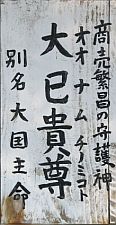 商売繁昌の守護神
オオナムチノミコト
大已貴尊
別名大国主命